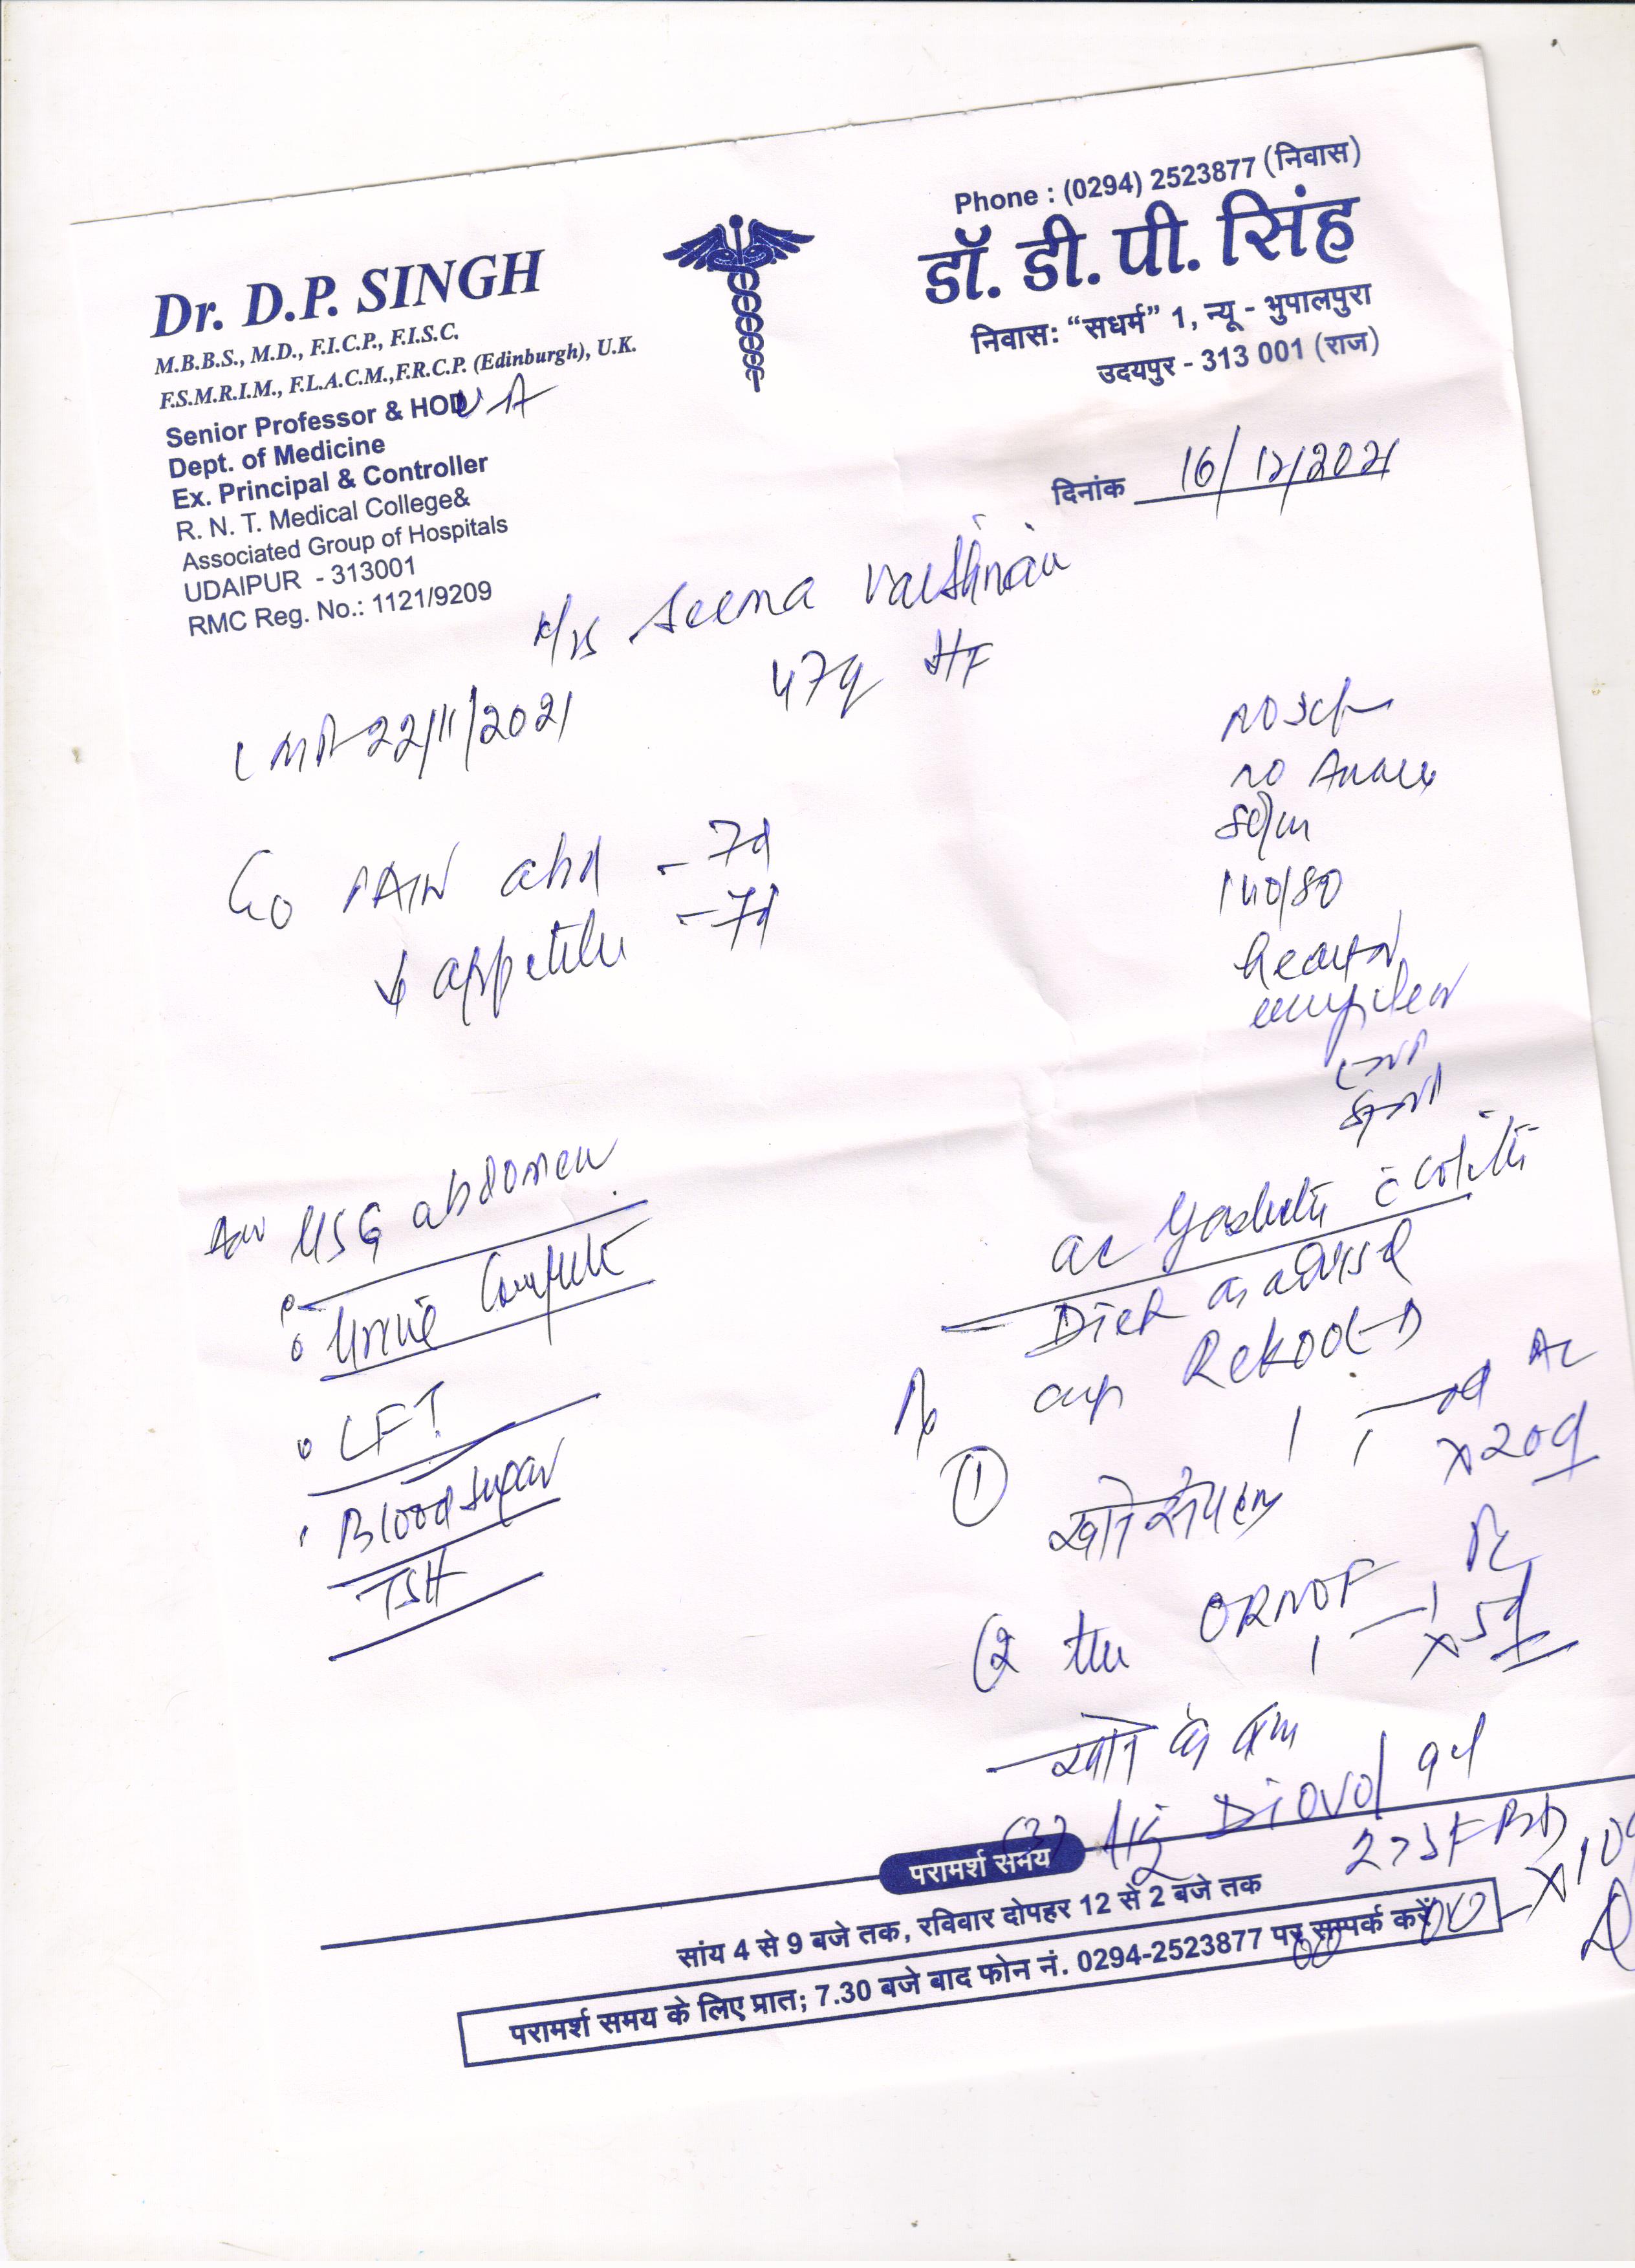 Phone : (0294) 2523877 (निवास)
Dr. D.P. SINGH
M.B.B.S., M.D., F.I.C.P., F.I.S.C.
F.S.M.R.I.M., F.L.A.C.M.,F.R.C.P. (Edinburgh), U.K.
Senior Professor & HOD
Dept. of Medicine
Ex. Principal & Controller
R. N. T. Medical College&
Associated Group of Hospitals
UDAIPUR - 313001
RMC Reg. No.: 1121/9209
डॉ. डी. पी. सिंह
निवास: “सधर्म” 1, न्यू - भुपालपुरा
उदयपुर - 313 001 (राज)
दिनांक 16/12/2021
Seema Vaishnav
47y HF
LMP 22/11/2021
C/o PAIN abd - 7d
↓ appetite - 7d
140/80
USG abdomen
Urine Complete
LFT
Blood Sugar
TSH
ac Gastritis c̄ colitis
Diet as advised
Rx
1 cap Rekool-D
1 - 1 AC
x20d
खाने से पहले
2 ORNOF
1 - 1 PC
x5d
खाने के बाद
(3) Diovol
2 TSF BD
x10d
परामर्श समय
सांय 4 से 9 बजे तक, रविवार दोपहर 12 से 2 बजे तक
परामर्श समय के लिए प्रात; 7.30 बजे बाद फोन नं. 0294-2523877 पर सम्पर्क करें